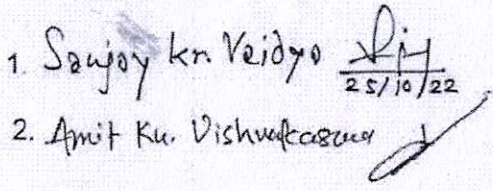 1. Sanjoy kr. Vaidya
25/10/22
2. Amit Ku. Vishwakarma